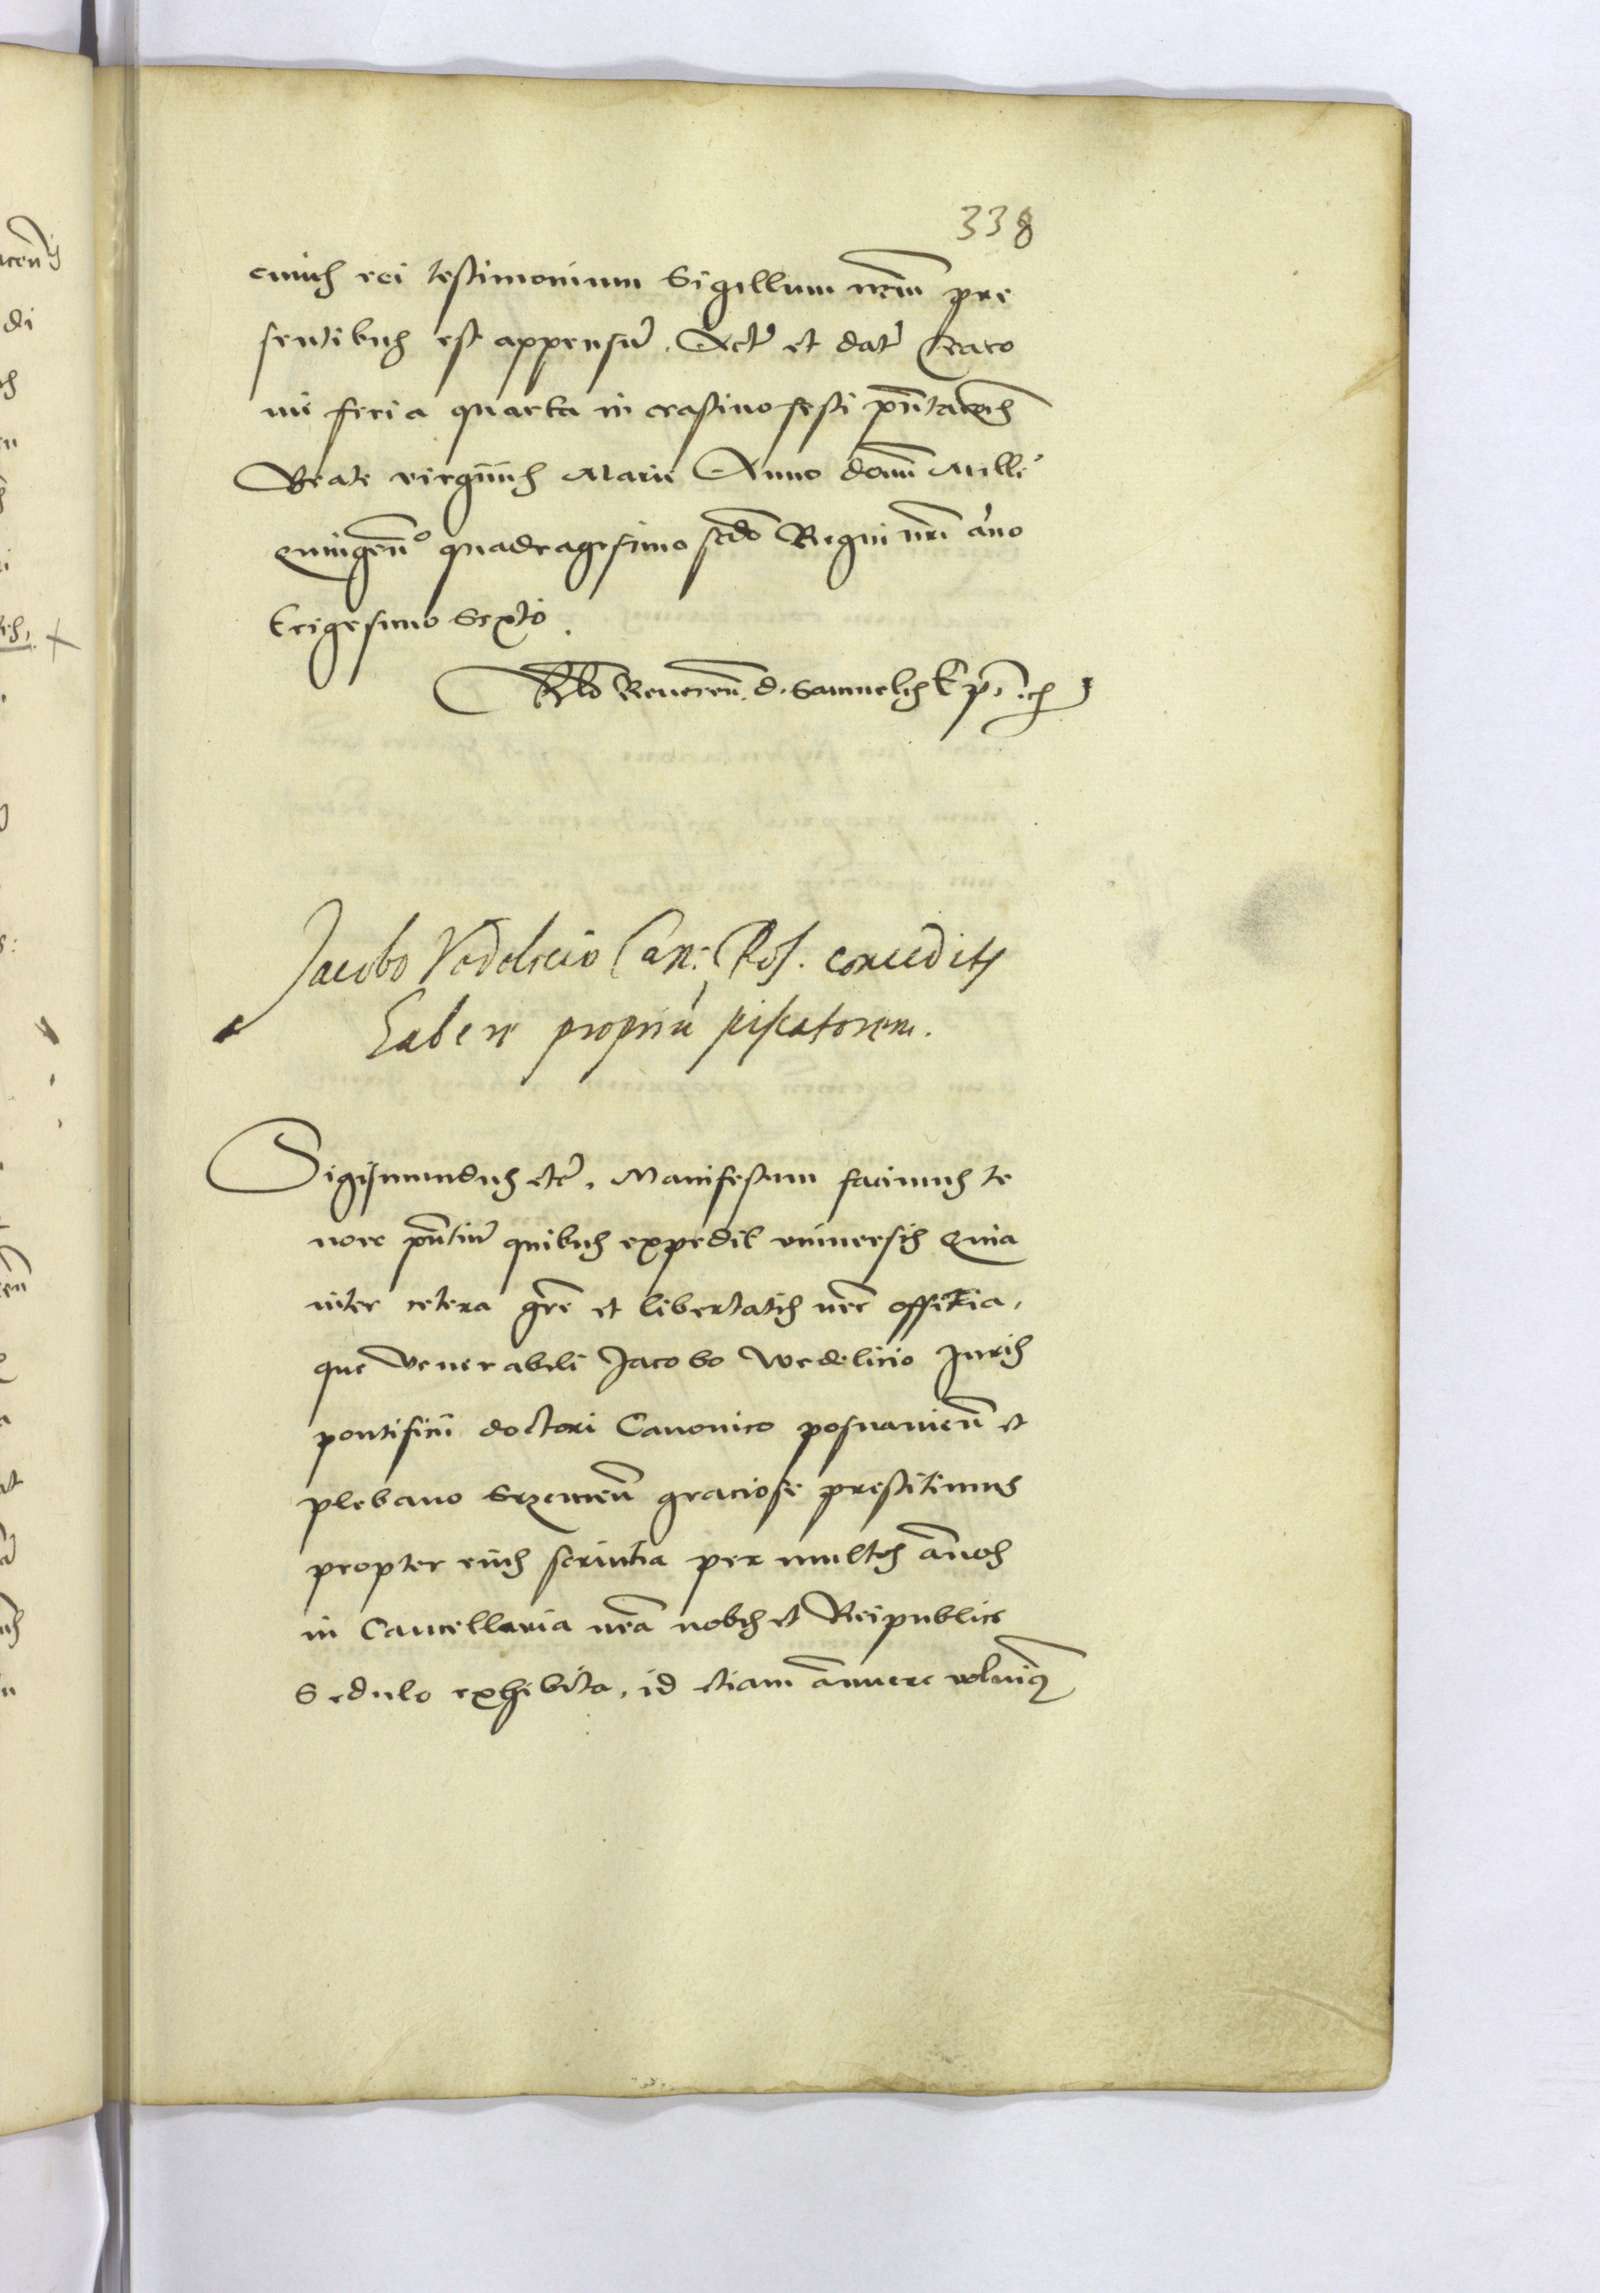 338
cuius rei testimonium Sigillum nrm̄ pre
sentibus est appensū. Actū et datū Craco
uie feria quarta in crastino festi pn̄tationis
Beate virginis Marie Anno domī Mille°
quingen̄° quadragesimo scdō Regni nrī āno
trigesimo Sexto.
Rlō Reueren̄. d. Samuelis Ep̄i
Jacobo Vedelicio Can: Pos. conceditur
habere propriū piscatorem.
Sigismundus etc̄. Manifestum facimus te
nore pn̄tium quibus expedit vniuersis Quia
inter cetera grē et libertatis nrē officia,
que Venerabili Jacobo Wedelicio Juris
pontificij doctori Canonico posnanien̄ et
plebano Srzemen̄ graciose prestitimus
propter eius seruitia per multos annos
in Cancellaria nrā nobis et Reipublice
Sedulo exhibita, id etiam annuere voluimus